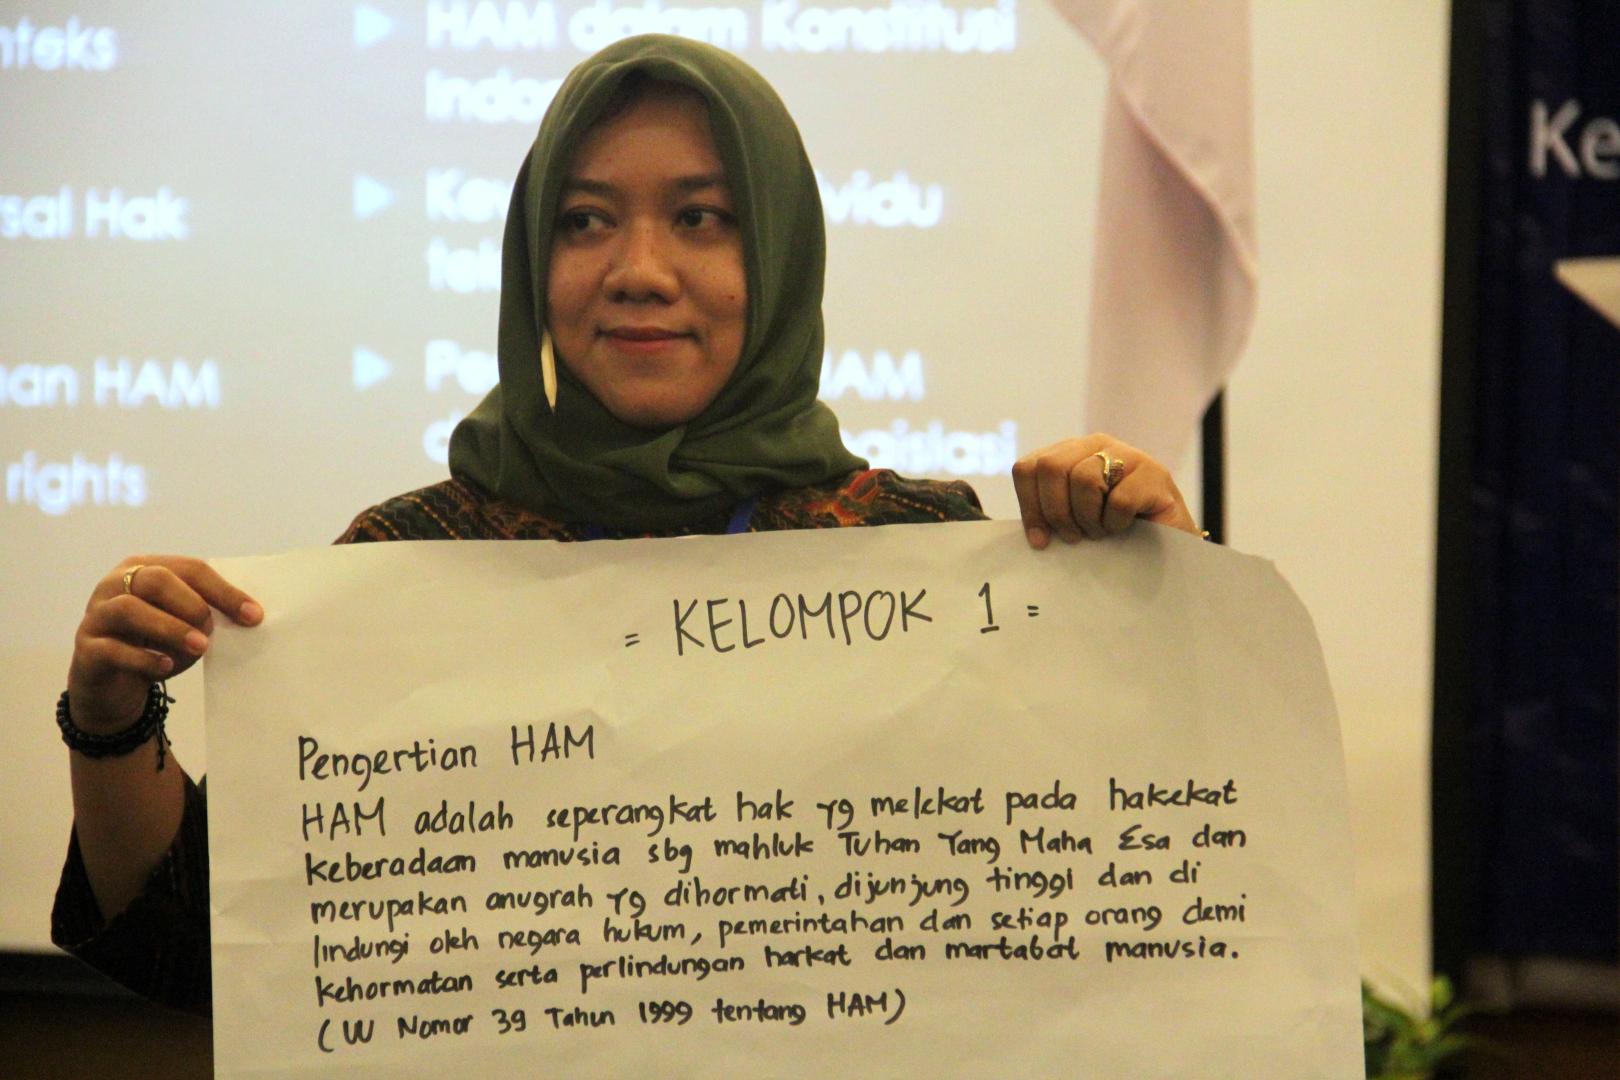 nteks
HAM dalam Konstitusi
rsal Hak
vidu
nan HAM
rights
Ke
= KELOMPOK 1 =
Pengertian HAM
HAM adalah seperangkat hak yg melekat pada hakekat
keberadaan manusia sbg mahluk Tuhan Yang Maha Esa dan
merupakan anugrah yg dihormati, dijunjung tinggi dan di
lindungi oleh negara hukum, pemerintahan dan setiap orang demi
kehormatan serta perlindungan harkat dan martabat manusia.
(UU Nomor 39 Tahun 1999 tentang HAM)